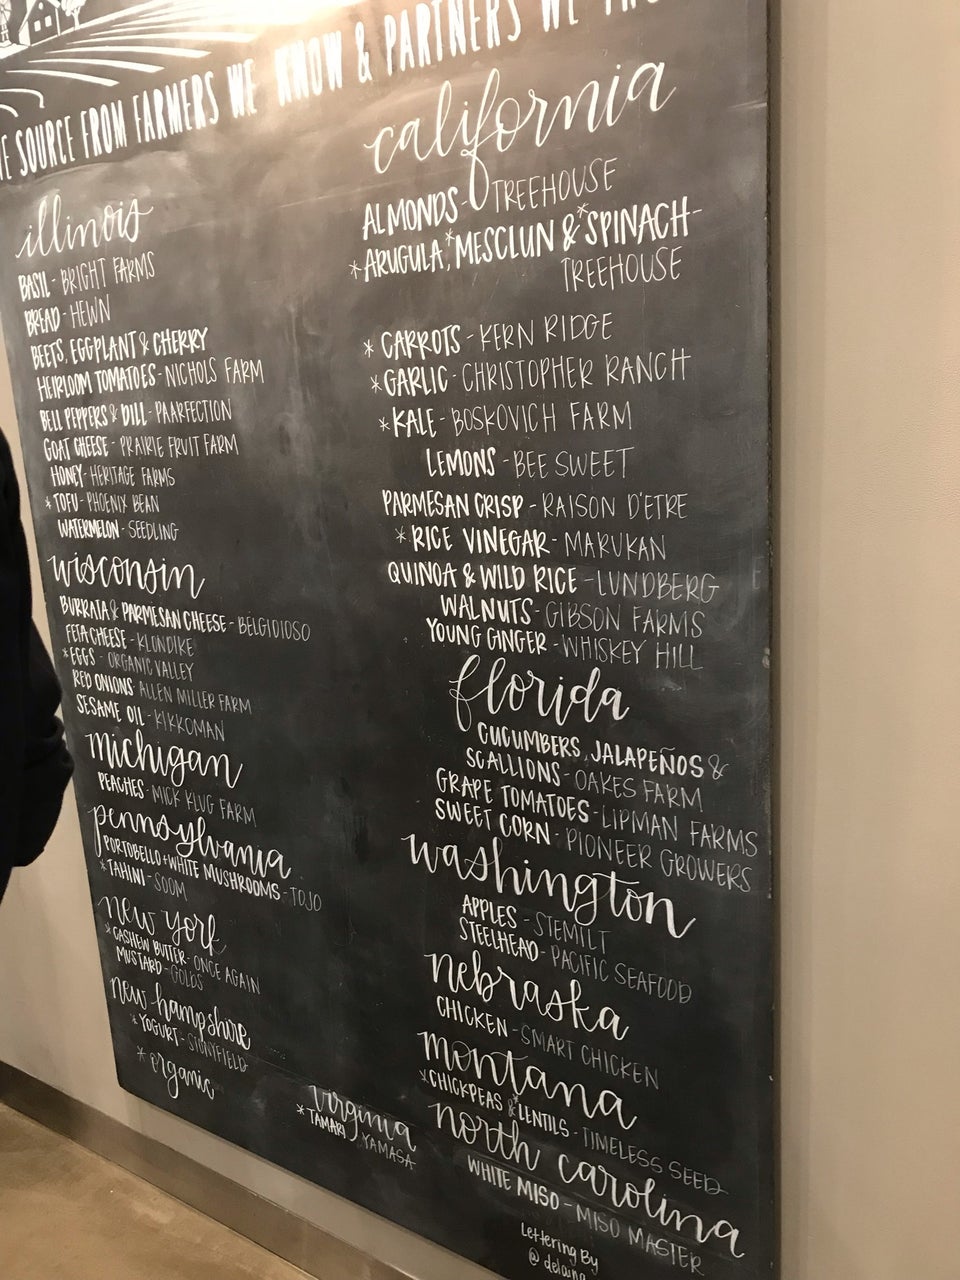 WE SOURCE FROM FARMERS WE KNOW & PARTNERS WE
illinois
BASIL - BRIGHT FARMS
BREAD - HEWN
BEETS, EGGPLANT & CHERRY
HEIRLOOM TOMATOES - NICHOLS FARM
BELL PEPPERS & DILL - PAARFECTION
GOAT CHEESE - PRAIRIE FRUIT FARM
HONEY - HERITAGE FARMS
* TOFU - PHOENIX BEAN
WATERMELON - SEEDLING
wisconsin
BURRATA & PARMESAN CHEESE - BELGIOIOSO
FETA CHEESE - KLONDIKE
* EGGS - ORGANIC VALLEY
RED ONIONS - ALLEN MILLER FARM
SESAME OIL - KIKKOMAN
michigan
PEACHES - MICK KLUG FARM
pennsylvania
PORTOBELLO + WHITE MUSHROOMS - TOJO
* TAHINI - SOOM
new york
* CASHEW BUTTER - ONCE AGAIN
MUSTARD - GOLDS
new hampshire
* YOGURT - STONYFIELD
* organic
virginia
* TAMARI - YAMASA
california
ALMONDS - TREEHOUSE
* ARUGULA, * MESCLUN & * SPINACH -
TREEHOUSE
* CARROTS - KERN RIDGE
* GARLIC - CHRISTOPHER RANCH
* KALE - BOSKOVICH FARM
LEMONS - BEE SWEET
PARMESAN CRISP - RAISON D'ETRE
* RICE VINEGAR - MARUKAN
QUINOA & WILD RICE - LUNDBERG
WALNUTS - GIBSON FARMS
YOUNG GINGER - WHISKEY HILL
florida
CUCUMBERS, JALAPEÑOS &
SCALLIONS - OAKES FARM
GRAPE TOMATOES - LIPMAN FARMS
SWEET CORN - PIONEER GROWERS
washington
APPLES - STEMILT
STEELHEAD - PACIFIC SEAFOOD
nebraska
CHICKEN - SMART CHICKEN
montana
* CHICKPEAS & * LENTILS - TIMELESS SEED
north carolina
WHITE MISO - MISO MASTER
Lettering By